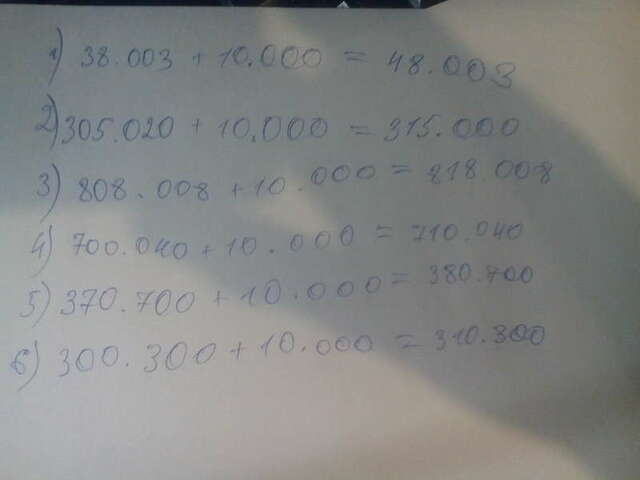 1) 38.003 + 10.000 = 48.003
2) 305.020 + 10.000 = 315.000
3) 808.008 + 10.000 = 818.008
4) 700.040 + 10.000 = 710.040
5) 370.700 + 10.000 = 380.700
6) 300.300 + 10.000 = 310.300